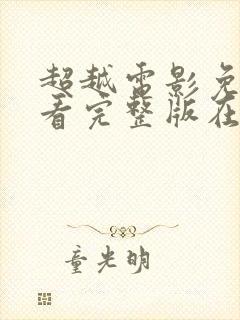 超越雷影免
看完整版在
童光明